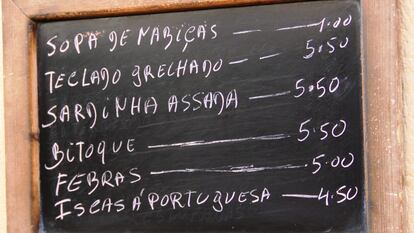 SOPA DE NABIÇAS — 1.00
TECLADO GRECHADO — 5.50
SARDINHA ASSADA — 5.50
BITOQUE — 5.50
FEBRAS — 5.00
ISCAS Á PORTUGUESA — 4.50